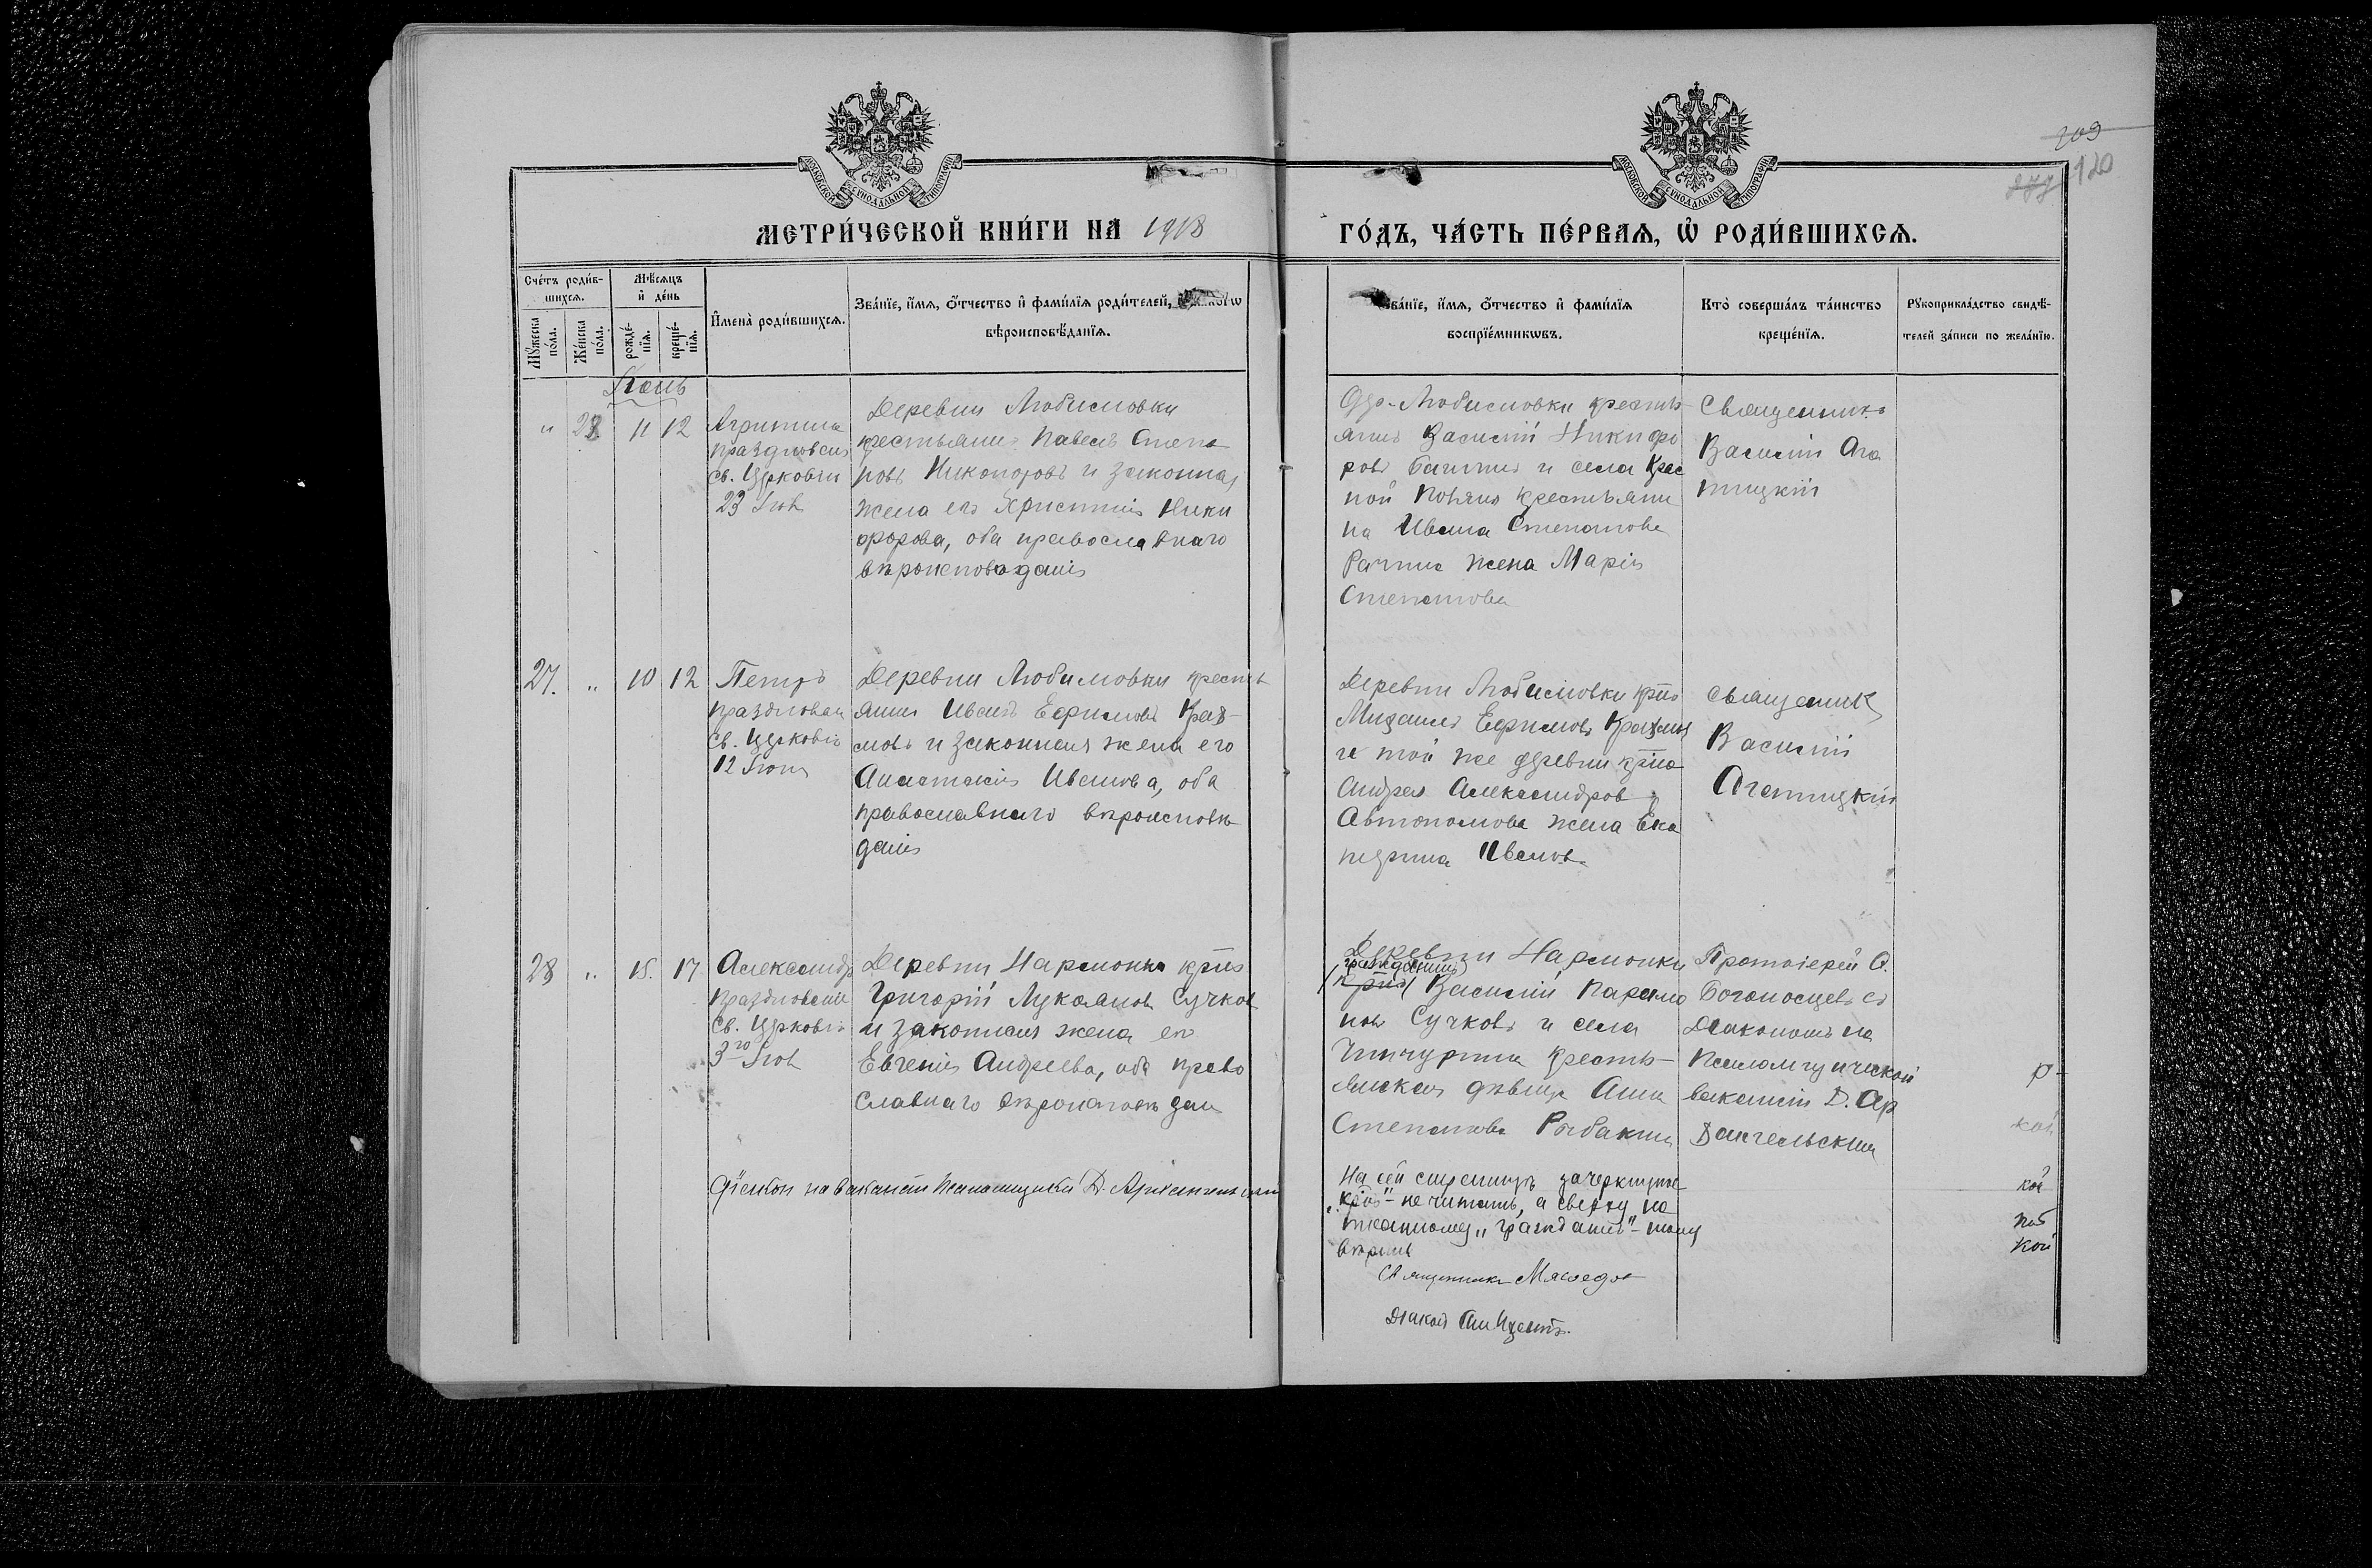 209
277 120
МОСКОВСКОЙ СѴНОДАЛЬНОЙ ТИПОГРАФІИ
МОСКОВСКОЙ СѴНОДАЛЬНОЙ ТИПОГРАФІИ
МЕТРИ́ЧЕСКОЙ КНИ́ГИ НА 1918
ГО́ДЪ, ЧА́СТЬ ПЕ́РВАѦ, Ѡ РОДИ́ВШИХСѦ.
Сче́тъ роди́в-
шихсѧ.
Мѣ́сѧцъ
и҆ де́нь
Мꙋ́жеска
по́ла.
Же́нска
по́ла.
рожде́-
нїѧ.
креще́-
нїѧ.
И҆мена̀ роди́вшихсѧ.
Зва́нїе, и҆́мѧ, ѻ҆́тчество и҆ фами́лїѧ роди́телей,
вѣроисповѣ́данїѧ.
Зва́нїе, и҆́мѧ, ѻ҆́тчество и҆ фами́лїѧ
воспрїе́мникѡвъ.
Кто̀ соверша́лъ та́инство
креще́нїѧ.
Рꙋкоприкла́дство свидѣ́-
телей за́писи по жела́нїю.
Іюнь
" 28 11 12
Агрипина
празднован
св. Церковію
23 Іюн
Деревни Любимовки
крестьянинъ Павелъ Степа
новъ Никоноровъ и законная
жена его Христинія Ники
форова, оба православнаго
вѣроисповѣданія
Дер. Любимовки кресть-
янинъ Василій Никифо
ровъ и села Крас
ной крестьяни
на Ивана Степанова
жена Марія
Степанова
Священникъ
Василій Ага
питскій
27. " 10 12
Петръ
празднован
св. Церковію
12 Іюня
Деревни Любимовки кресть
янинъ Иванъ Ефимовъ
и законная жена его
Анастасія Иванова, оба
православнаго вѣроисповѣ
данія
Деревни Любимовки кр-нъ
Михаилъ Ефимовъ
и той же деревни кр-на
Андрея Александрова
Автономова жена Ека
терина Иванов.
священникъ
Василій
Агапитскій
28 " 15. 17
Александръ
празднованіе
св. Церковію
3-го Іюн
Деревни Нармонки кр-нъ
Григорій Лукояновъ Сучковъ
и законная жена его
Евгенія Андреева, оба право
славнаго вѣроисповѣдан
Деревни Нармонки
гражданинъ
(кр-нъ) Василій Парамо
новъ Сучковъ и села
кресть-
янская дѣвица Анна
Степанова Рыбакина
Протоіерей О.
Богоносцевъ съ
Діакономъ на
Псаломщической
вакансіи Д. Ар
хангельскимъ
Діаконъ на вакансіи Псаломщика Д. Архангельскій
На сей страницѣ зачеркнутое
"кр-нъ" - не читать, а сверху на
писанному "гражданинъ" - тому
вѣрить
Священникъ
Діаконъ
р-
кой
кой
кой